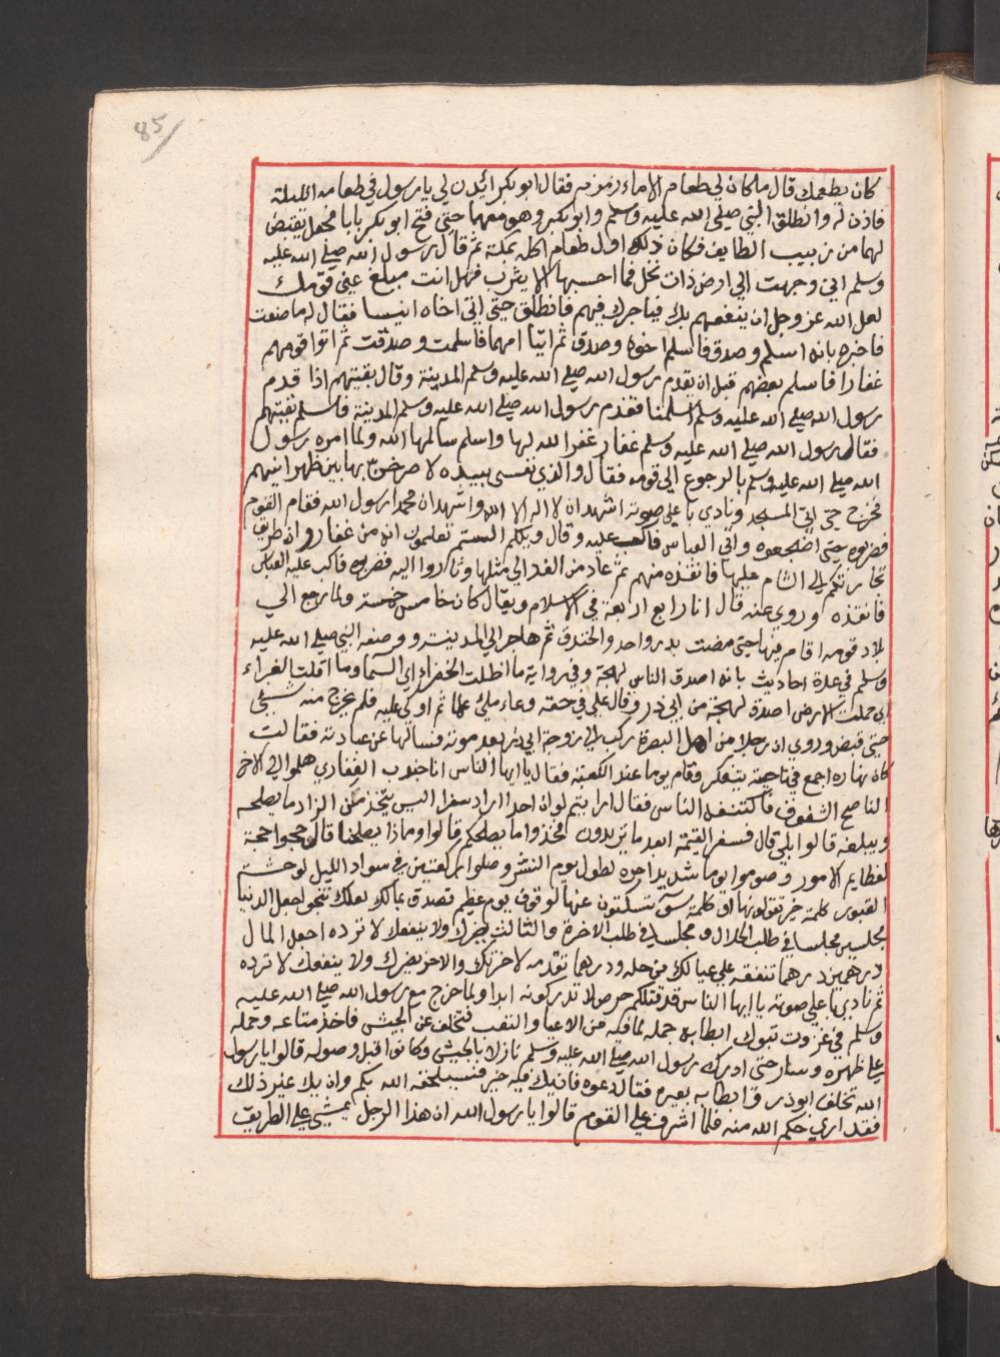 85
كان يطعمك قال ما كان لي طعام الا ماء زمزم فقال ابو بكر ائذن لي يا رسول في طعامه الليلة
فاذن له وانطلق النبي صلى الله عليه وسلم وابو بكر وهو معهما حتى فتح ابو بكر بابا فجعل يقبض
لهما من زبيب الطايف فكان ذلك اول طعام اكل بمكة ثم قال رسول الله صلى الله عليه
وسلم اني وجهت الي ارض ذات نخل فما احسبها الا يثرب فهل انت مبلغ عني قومك
لعل الله عز وجل ان ينفعهم بك فياجرك فيهم فانطلق حتى اتى اخاه انيسا فقال له ما صنعت
فاخبره بانه اسلم وصدق فاسلم اخوه وصدق ثم اتيا امهما فاسلمت وصدقت ثم اتوا قومهم
غفارا فاسلم بعضهم قبل ان يقدم رسول الله صلى الله عليه وسلم المدينة وقال بقيتهم اذا قدم
رسول الله صلى الله عليه وسلم اسلمنا فقدم رسول الله صلى الله عليه وسلم المدينة فاسلم بقيتهم
فقال رسول الله صلى الله عليه وسلم غفار غفر الله لها واسلم سالمها الله ولما امره رسول
الله صلى الله عليه وسلم بالرجوع الى قومه فقال والذي نفسي بيده لاصرخن بها بين ظهرانيهم
فخرج حتى اتى المسجد ونادي باعلى صوته اشهد ان لا اله الا الله واشهد ان محمدا رسول الله فقام القوم
فضربوه حتى اضجعوه واتى العباس فاكب عليه وقال ويلكم الستم تعلمون انه من غفار وان طريق
تجارتكم الى الشام عليها فانقذه منهم ثم عاد من الغد الى مثلها وثاروا اليه فضربوه فاكب عليه العباس
فانقذه وروي عنه قال انا رابع اربعة في الاسلام ويقال كان خامس خمسة ولما رجع الى
بلاد قومه اقام فيها حتى مضت بدر واحد والخندق ثم هاجر الى المدينة ووصفه النبي صلى الله عليه
وسلم في عدة احاديث بانه اصدق الناس لهجة وفي رواية ما اظلت الخضراء اي السما وما اقلت الغبراء
اي حملت الارض اصدق لهجة من ابي ذر وقال علي في حقه وعاء ملئ علما ثم اوكي عليه فلم يخرج منه شئ
حتى قبض وروي ان رجلا من اهل البصرة ركب الى زوجة ابي ذر بعد موته فسالها عن عبادته فقالت
كان نهاره اجمع في ناحية يتفكر وقام يوما عند الكعبة فقال يا ايها الناس انا جندب الغفاري هلموا الى الاخ
الناصح الشفوق فاكتنفه الناس فقال ارايتم لو ان احدا اراد سفرا اليس يتخذ من الزاد ما يصلحه
ويبلغه قالوا بلى قال فسفر القيمة ابعد ما تريدون فخذوا ما يصلحكم قالوا وماذا يصلحنا قال حجوا حجة
لعظايم الامور وصوموا يوما شديدا حره لطول يوم النشر وصلوا ركعتين في سواد الليل لوحشة
القبور كلمة خير تقولونها او كلمة سو تسكتون عنها لوقوف يوم عظيم تصدق بمالك لعلك تنجو اجعل الدنيا
مجلسين مجلسا في طلب الحلال ومجلسا في طلب الاخرة والثالث يضرك ولا ينفعك لا ترده اجعل المال
درهمين درهما تنفقه على عيالك من حله ودرهما تقدمه لاخرتك والاخر يضرك ولا ينفعك لا ترده
ثم نادي باعلى صوته يا ايها الناس قد قتلكم حرص لا تدركونه ابدا ولما خرج مع رسول الله صلى الله عليه
وسلم في غزوت تبوك ابطا به جمله لما فيه من الاعيا والتعب فتخلف عن الجيش فاخذ متاعه وحمله
على ظهره وسار حتى ادرك رسول الله صلى الله عليه وسلم نازلا بالجيش وكانوا قبل وصوله قالوا يا رسول
الله تخلف ابو ذر وابطا به بعيره فقال دعوه فان يك فيه خير فسيلحقه الله بكم وان يك غير ذلك
فقد اراحكم الله منه فلما اشرف على القوم قالوا يا رسول الله ان هذا الرجل يمشي على الطريق